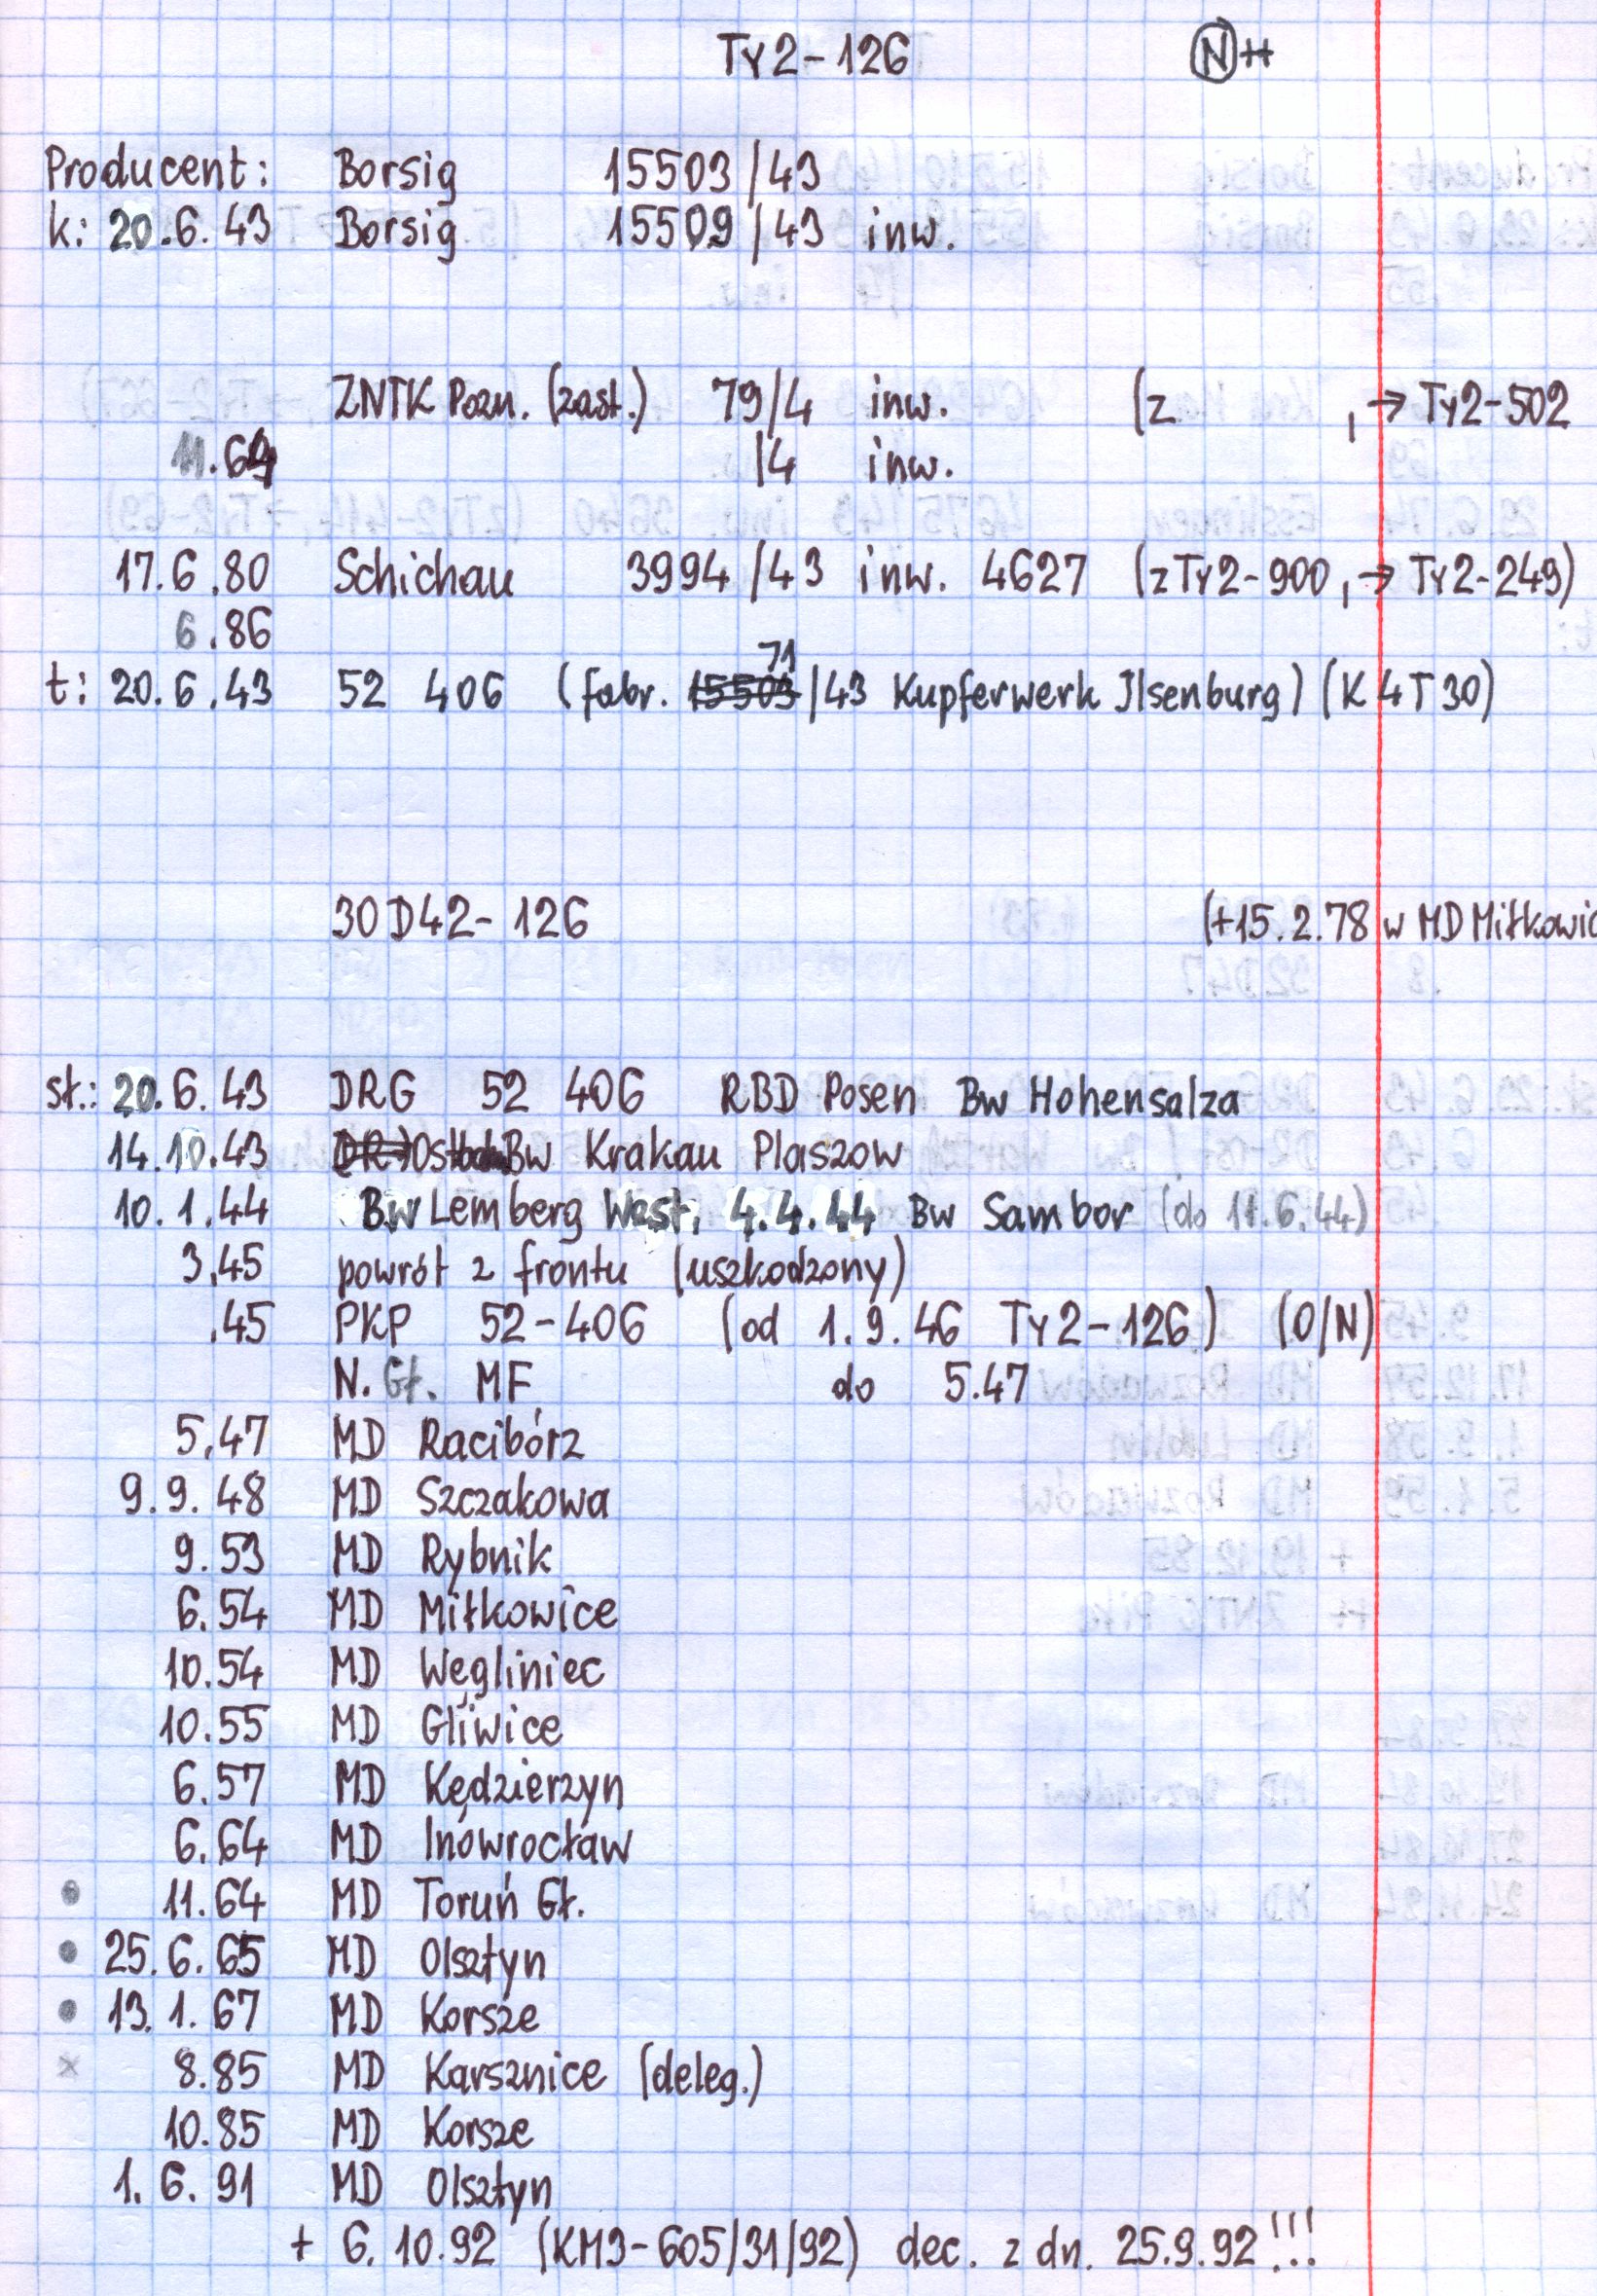 Ty2-126 (N)++
Producent: Borsig 15503/43
k: 20.6.43 Borsig 15509/43 inw.
ZNTK Pozn. (zast.) 79/4 inw. (z , → Ty2-502
11.69 /4 inw.
17.6.80 Schichau 3994/43 inw. 4627 (z Ty2-900, → Ty2-249)
6.86
71
t: 20.6.43 52 406 (fabr. 15503/43 Kupferwerk Ilsenburg) (K4T30)
30D42-126 (+15.2.78 w MD Miłkowic
st.: 20.6.43 DRG 52 406 RBD Posen Bw Hohensalza
14.10.43 Bw Krakau Plaszow
10.1.44 Bw Lemberg West, 4.4.44 Bw Sambor (do 11.6.44)
3.45 powrót z frontu (uszkodzony)
.45 PKP 52-406 (od 1.9.46 Ty2-126) (O/N)
N. Gł. MF do 5.47
5.47 MD Racibórz
9.9.48 MD Szczakowa
9.53 MD Rybnik
6.54 MD Miłkowice
10.54 MD Węgliniec
10.55 MD Gliwice
6.57 MD Kędzierzyn
6.64 MD Inowrocław
• 11.64 MD Toruń Gł.
• 25.6.65 MD Olsztyn
• 13.1.67 MD Korsze
x 8.85 MD Karsznice (deleg.)
10.85 MD Korsze
1.6.91 MD Olsztyn
+ 6.10.92 (KM3-605/31/92) dec. z dn. 25.9.92!!!